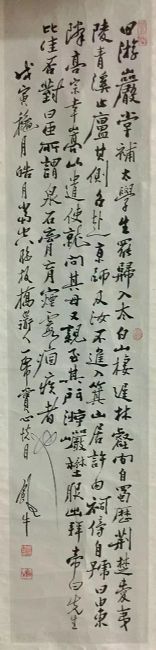 田游巖嘗補太學生罷歸入太白山棲遲林壑間自蜀歷荊楚愛夷
陵青溪止廬其側召赴京師及汝不進入箕山居許由祠傍自號曰由東
隣高宗幸嵩山遣使就問其母又親至其門游巖壄服出拜帝曰先生
比佳否對曰臣所謂泉石膏肓煙霞痼疾者
戊寅穐月皓月當空